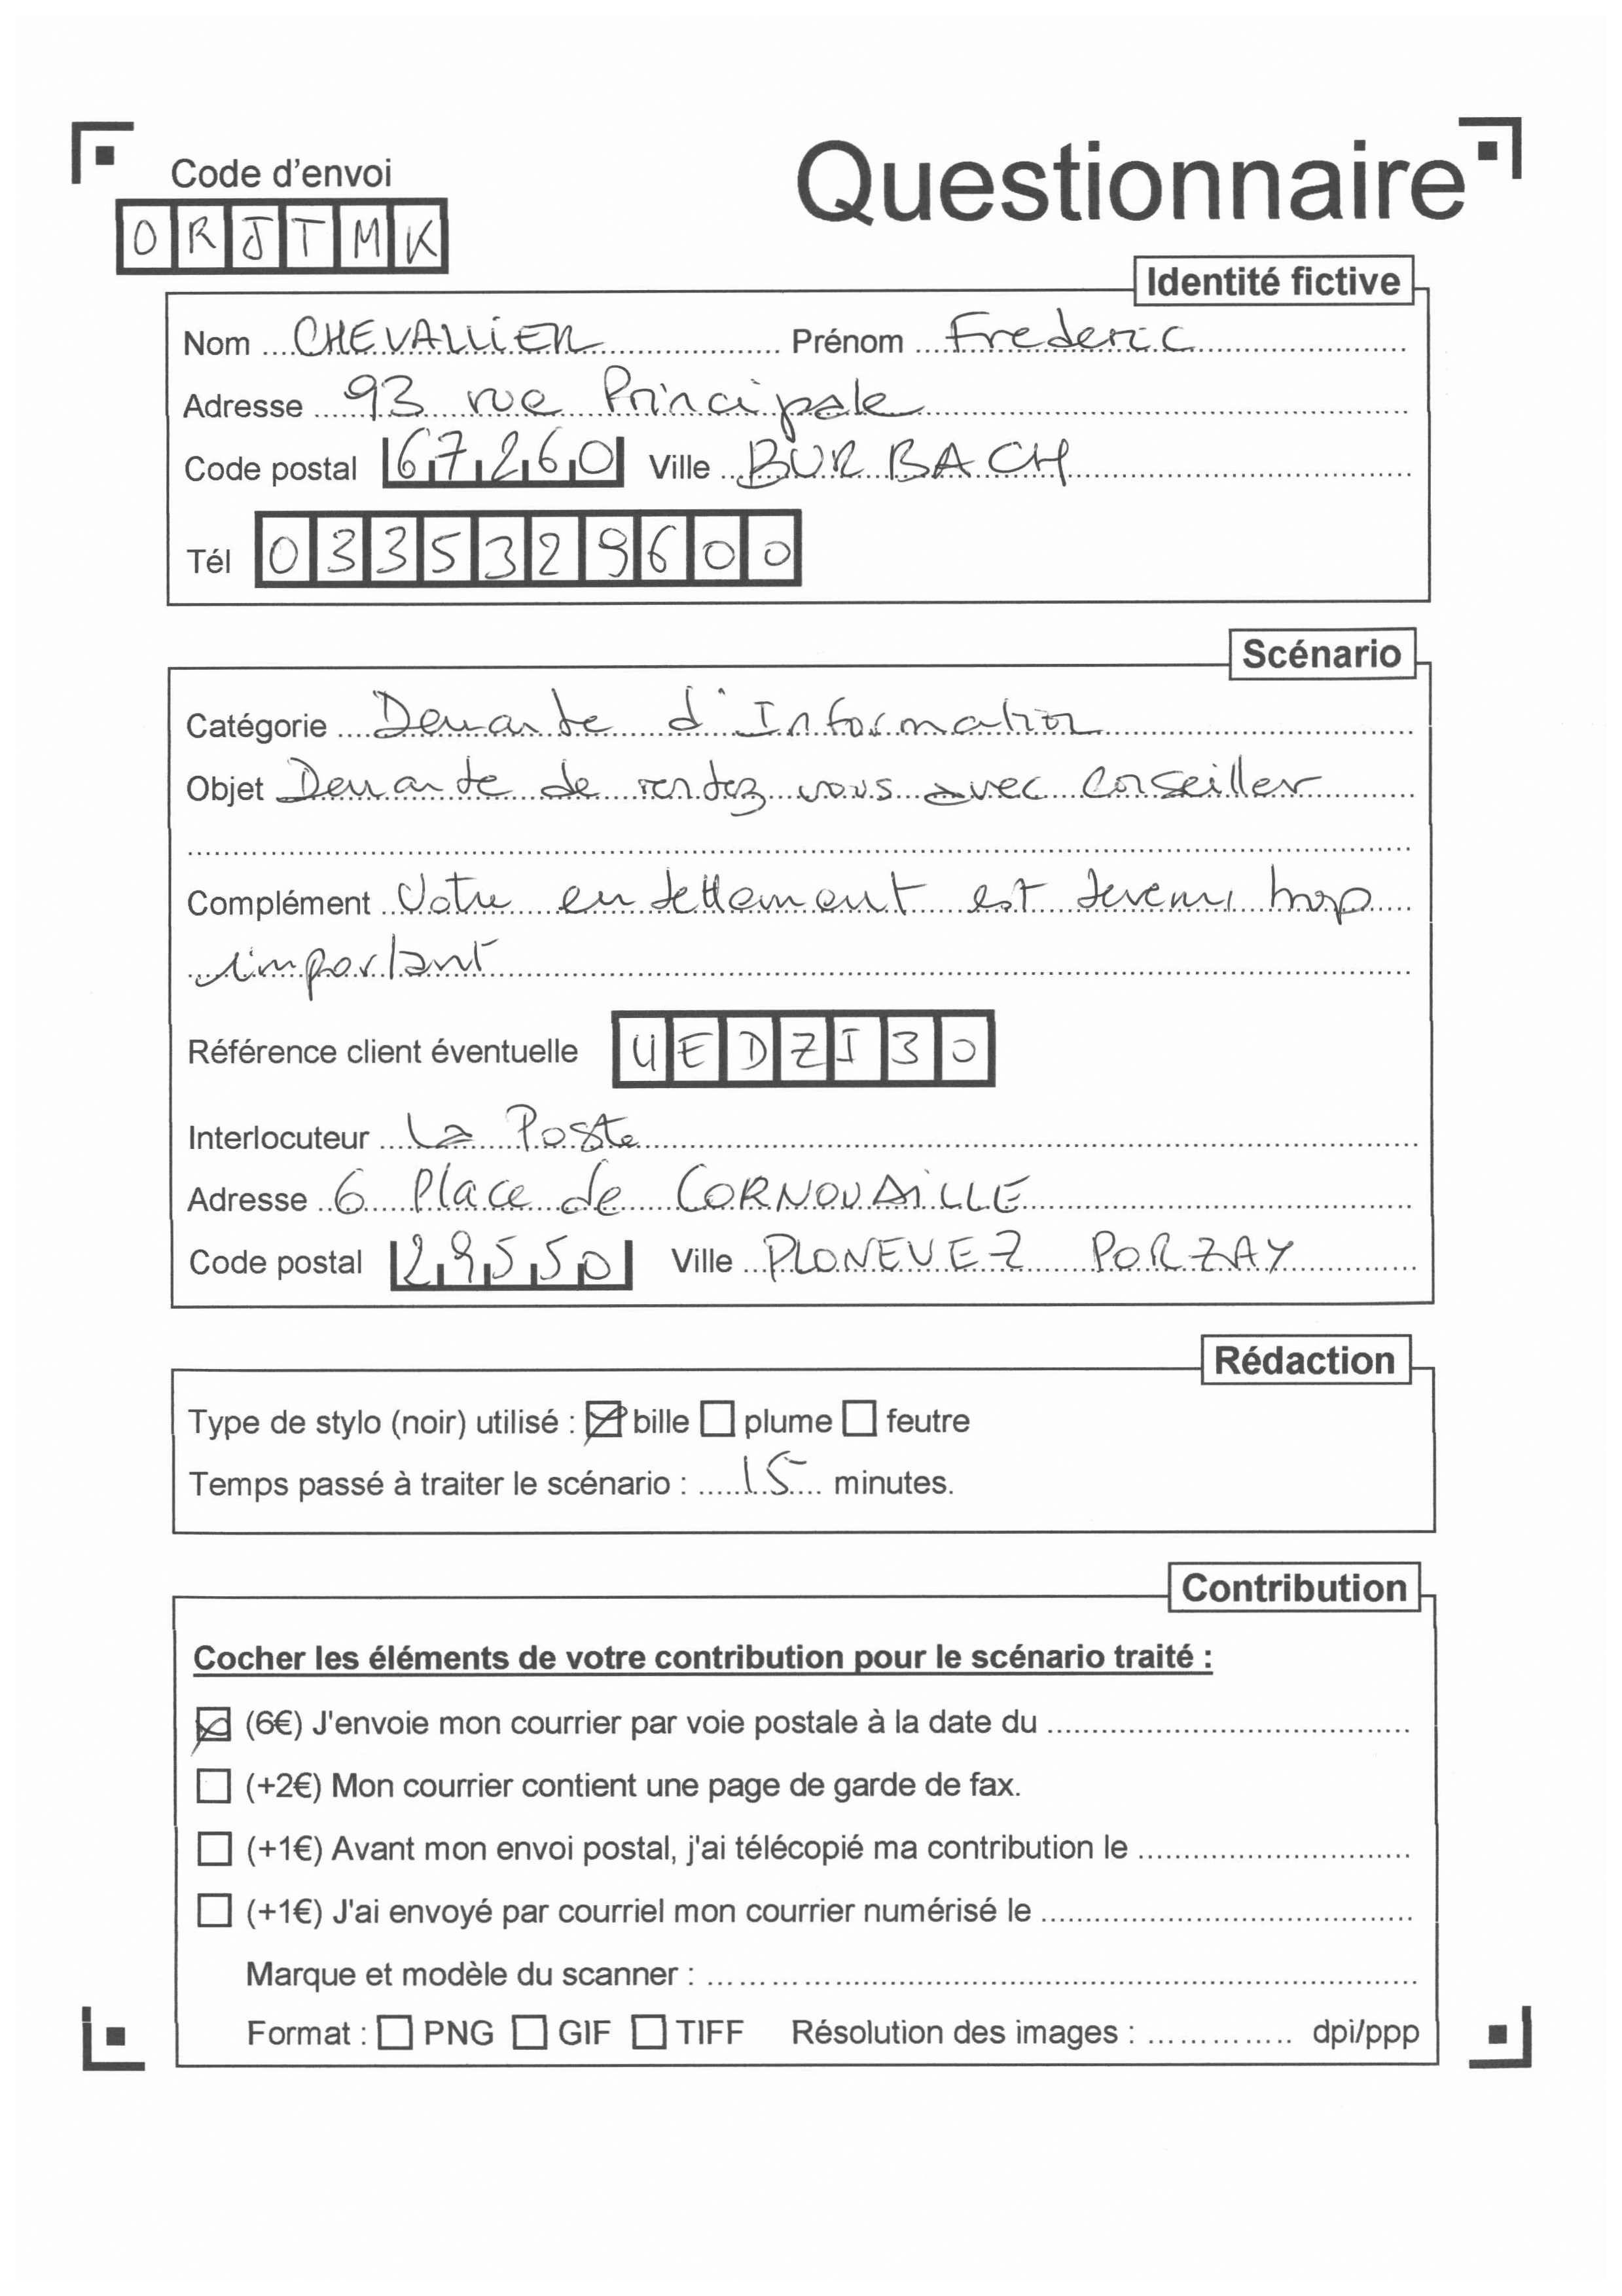 Code d'envoi
Questionnaire
ORJTMK
Identité fictive
Nom CHEVALLIER Prénom Frederic
Adresse 93 rue Principale
Code postal 67260 Ville BURBACH
Tél 0335329600
Scénario
Catégorie Demande d'Information
Objet Demande de rendez vous avec conseiller
Complément Votre endettement est devenu trop
important
Référence client éventuelle UEDZI30
Interlocuteur La Poste
Adresse 6 Place de CORNOUAILLE
Code postal 29550 Ville PLONEVEZ PORZAY
Rédaction
Type de stylo (noir) utilisé : ☒ bille ☐ plume ☐ feutre
Temps passé à traiter le scénario : 15 minutes.
Contribution
Cocher les éléments de votre contribution pour le scénario traité :
☒ (6€) J'envoie mon courrier par voie postale à la date du
☐ (+2€) Mon courrier contient une page de garde de fax.
☐ (+1€) Avant mon envoi postal, j'ai télécopié ma contribution le
☐ (+1€) J'ai envoyé par courriel mon courrier numérisé le
Marque et modèle du scanner :
Format : ☐ PNG ☐ GIF ☐ TIFF Résolution des images : dpi/ppp